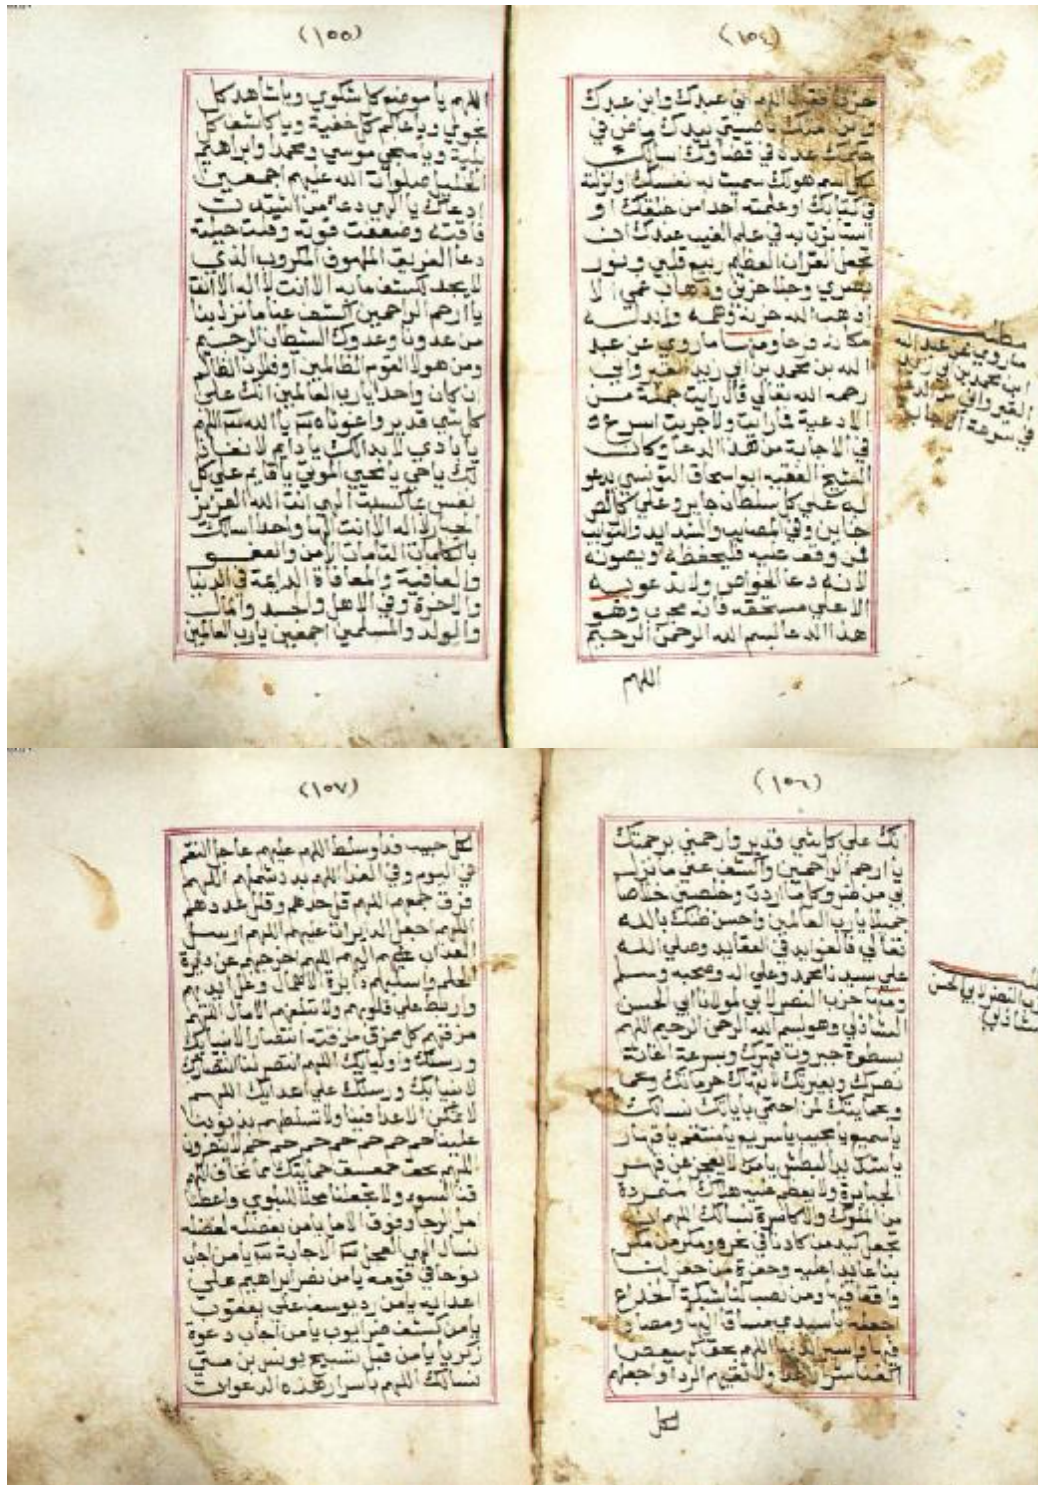 (١٠٤)
حزن فقال اللهم اني عبدك وابن عبدك
وابن امتك ناصيتي بيدك ماض في
حكمك عدل في قضاوك اسالك
بكل اسم هولك سميت به نفسك اوانزلته
في كتابك اوعلمته احدا من خلقك او
استاثرت به في علم الغيب عندك ان
تجعل القران العظيم ربيع قلبي ونور
بصري وجلا حزني وذهاب غمي الا
اذهب الله حزنه وهمه وابدله
مكانه فرحا ومنها ماروي عن عبد
الله بن محمد بن ابي زيد القيرواني
رحمه الله تعالي قال رايت جملة من
الادعية فمارايت ولاجربت اسرع
في الاجابة من هذا الدعا وكان
الشيخ الفقيه ابواسحاق التونسي يدعو
به علي كل سلطان جاير وعلي كل لص
خاين وفي المصايب والشدايد والنوايب
فمن وقف عليه فليحفظه ويصونه
لانه دعا الخواص ولا يدعو به
الاعلي مستحقه فانه مجرب وهو
هذا الدعا بسم الله الرحمن الرحيم
اللهم
مطلب
ماروي عن عبد الله
ابن محمد بن ابي زيد
القيرواني من الدعا
في سرعة الاجابة
(١٠٥)
اللهم ياموضع كل شكوي وياشاهد كل
نجوي وياعالم كل خفية وياكاشف كل
بلية ويامنجي موسي ومحمدا وابراهيم
الخليل صلوات الله عليهم اجمعين
ادعوك ياالهي دعا من اشتدت
فاقته وضعفت قوته وقلت حيلته
دعا الغريق الملهوف المكروب الذي
لايجد لكشف مابه الاانت لااله الاانت
ياارحم الراحمين اكشف عنا مانزل بنا
من عدونا وعدوك الشيطان الرجيم
ومن هولا القوم الظالمين اوفلان الظالم
ان كان واحدا يارب العالمين انك علي
كل شي قدير واغوثاه ياالله اللهم
يابادي لابدالك يادايم لانفاد
لك ياحي يامحيي الموتي ياقايم علي كل
نفس بماكسبت الهي انت الله العزيز
الجبار لااله الاانت الها واحدا اسالك
بالكلمات التامات الامن والعفو
والعافية والمعافاة الدايمة في الدنيا
والاخرة وفي الاهل والجسد والمال
والولد والمسلمين اجمعين يارب العالمين
(١٠٦)
انك علي كل شي قدير وارحمني برحمتك
ياارحم الراحمين واكشف عني مانزل
بي من ضر وكلما اردت وخلصني خلاصا
جميلا يارب العالمين واحسن ظنك بالله
تعالي فالفوايد في العقايد وصلي الله
علي سيدنا محمد وعلي اله وصحبه وسلم
ومنه حزب النصر لابي لمولانا ابي الحسن
الشاذلي وهو بسم الله الرحمن الرحيم اللهم
بسطوة جبروت قهرك وبسرعة اغاثة
نصرك وبغيرتك لانتهاك حرماتك
وبحمايتك لمن احتمي باياتك نسالك
ياسميع يامجيب ياسريع يامنتقم ياقهار
ياشديد البطش يامن لايعجز عن قهر
الجبابرة ولايعظم عليه هلاك متمردة
من الملوك والاكاسرة نسالك اللهم ان
تجعل كيد من كادنا في نحره ومكر من مكر
بنا عايد اعليه وحفرة من حفر لنا
واقعا فيها ومن نصب لنا شبكة الخداع
اجعله ياسيدي مساقا اليها ومصادا
فيها واسير لديها اللهم بحق كهيعص
اكفنا شر العدا ولقهم الردا واجعلهم
لكل
مطلب
حزب النصر لابي الحسن
الشاذلي
(١٠٧)
لكل حبيب فدا وسلط اللهم عليهم عاجل النقم
في اليوم وفي الغد اللهم بدد شملهم اللهم
فرق جمعهم اللهم فل حدهم وقلل عددهم
اللهم اجعل الدايرات عليهم اللهم ارسل
العذاب اليهم اللهم اخرجهم عن دايرة
الحلم واسلبهم دايرة الامهال وغل ايديهم
واربط علي قلوبهم ولاتبلغهم الامال اللهم
مزقهم كل ممزق مزقته انتصارا لانبيايك
ورسلك واوليايك اللهم انتصر لنا انتصارك
لانبيايك ورسلك علي اعدايك اللهم
لاتمكن الاعدا فينا ولاتسلطهم بذنوبنا
علينا حم حم حم حم حم حم حم لاينصرون
اللهم بحق حمعسق حمايتك مما نخاف اللهم
قنا السوء ولاتجعلنا محلا للبلوي واعطنا
امل الرجا وفوق الامل يامن بفضله لفضله
نسال الهي العجل الاجابة يامن اجاب
نوحا في قومه يامن نصر ابراهيم علي
اعدايه يامن رد يوسف علي يعقوب
يامن كشف ضر ايوب يامن اجاب دعوة
زكريا يامن قبل تسبيح يونس بن متي
نسالك اللهم باسرار هذه الدعوات